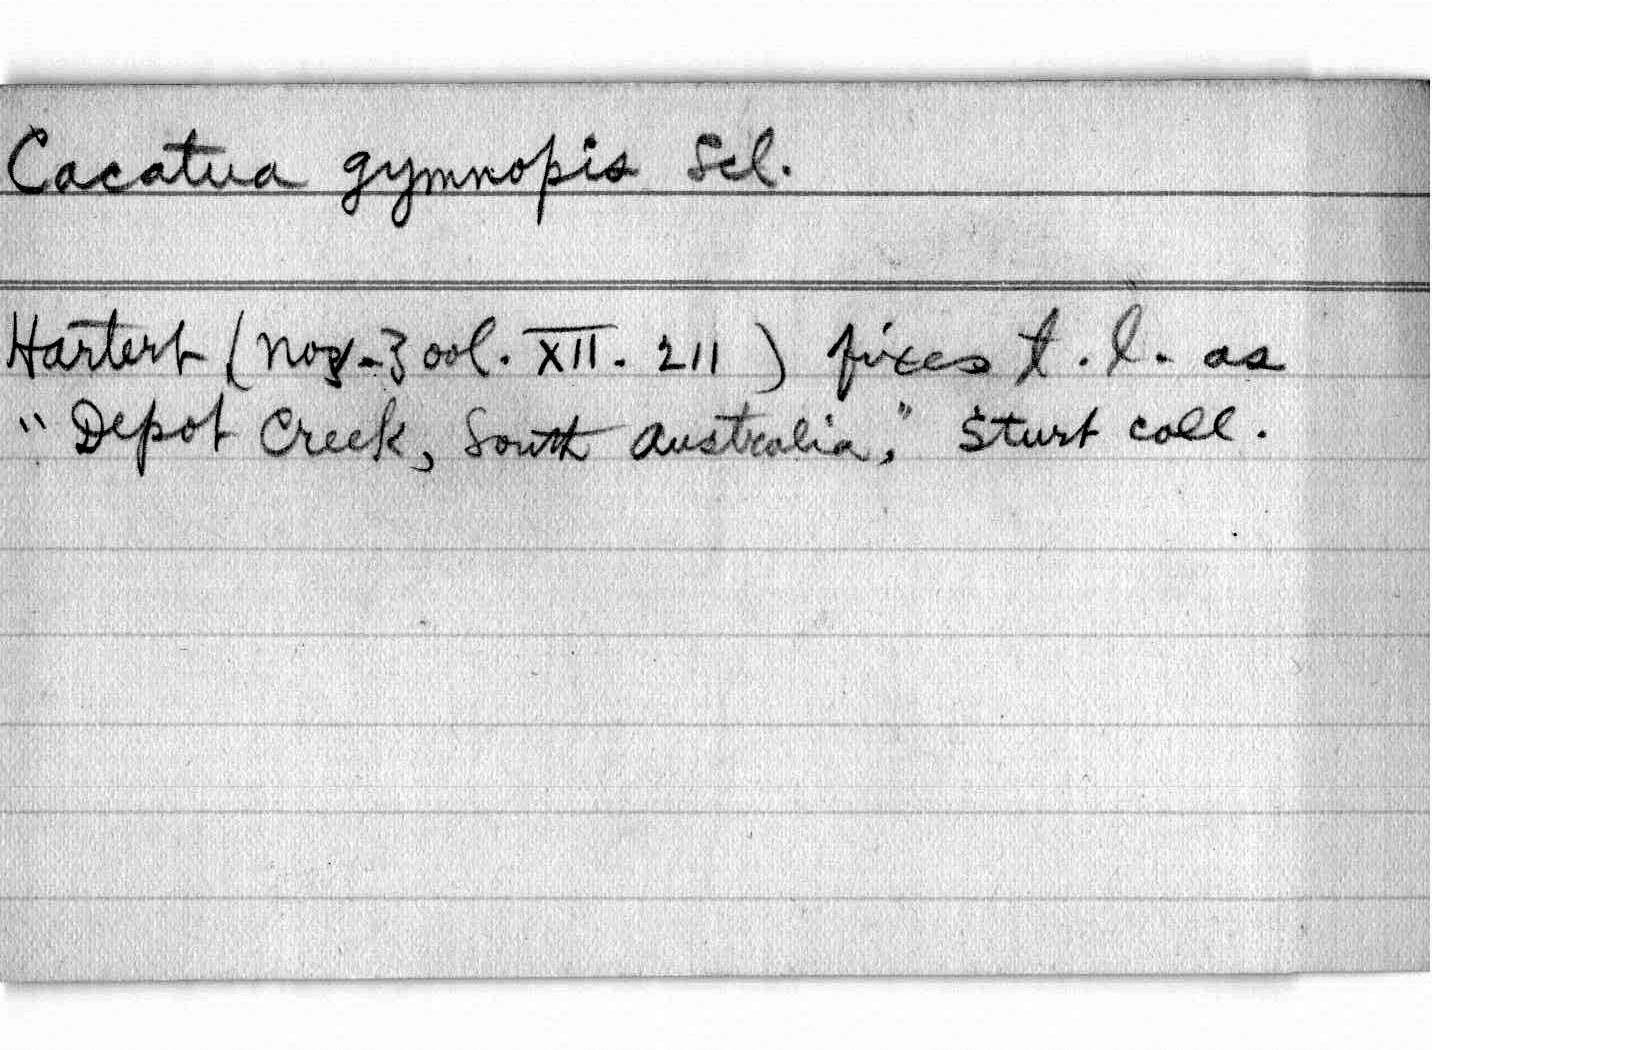 Cacatua gymnopis Scl.
Hartert (Nov. Zool. XII. 211) fixes t.l. as
"Depot Creek, South Australia," Sturt coll.